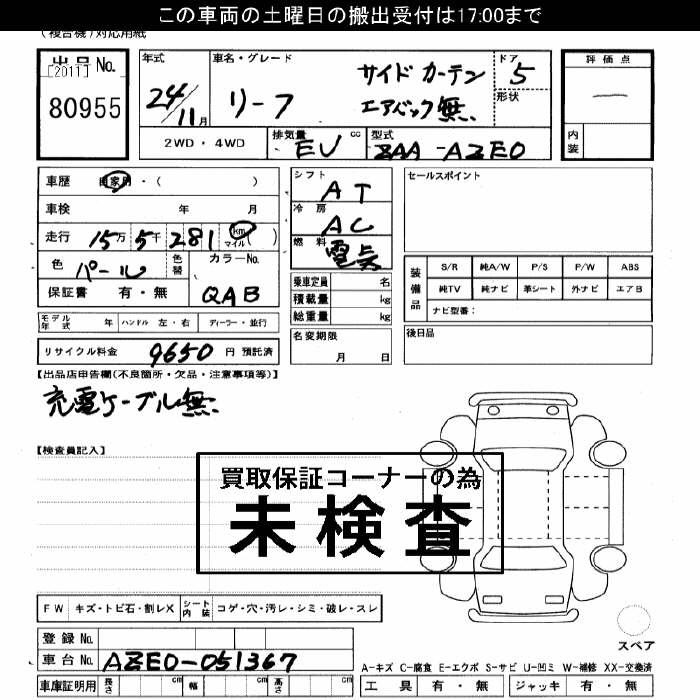 この車両の土曜日の搬出受付は17:00まで
(複合機)対応用紙
出品No. [2011] 80955
年式 24/11月
車名・グレード リーフ サイドカーテンエアバック無
ドア 5
形状
評価点 —
内装
2WD・4WD
排気量 EV cc
型式 ZAA-AZE0
車歴 自家用・( )
車検 年 月
走行 15万5千281 km マイル ( )
色 パール
色替
カラーNo. QAB
保証書 有・無
シフト AT
冷房 AC
燃料 電気
乗車定員 名
積載量 kg
総重量 kg
セールスポイント
装備品 S/R 純A/W P/S P/W ABS
純TV 純ナビ 革シート 外ナビ エアB
ナビ型番:
モデル年式 年 ハンドル 左・右 ディーラー・並行
名変期限 月 日
後日品
リサイクル料金 9650 円 預託済
【出品店申告欄(不良箇所・欠品・注意事項等)】
充電ケーブル無
【検査員記入】
買取保証コーナーの為
未検査
FW キズ・トビ石・割レX シート内装 コゲ・穴・汚レ・シミ・破レ・スレ
登録No.
車台No. AZE0-051367
スペア
A-キズ C-腐食 E-エクボ S-サビ U-凹ミ W-補修 XX-交換済
車庫証明用 長さ cm 幅 cm 高さ cm
工具 有・無 ジャッキ 有・無